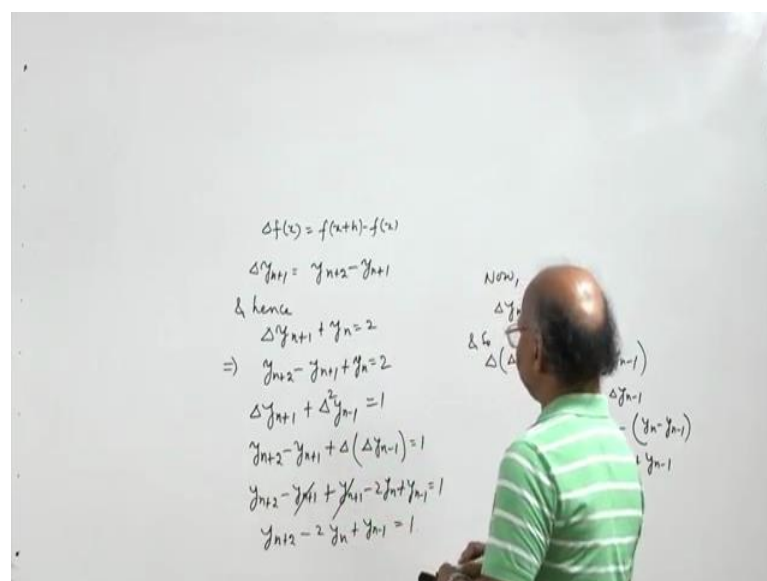 Δf(x) = f(x+h) - f(x)
Δy_{n+1} = y_{n+2} - y_{n+1}
& hence
Δy_{n+1} + y_n = 2
⇒) y_{n+2} - y_{n+1} + y_n = 2
Δy_{n+1} + Δ²y_{n-1} = 1
y_{n+2} - y_{n+1} + Δ(Δy_{n-1}) = 1
y_{n+2} - y_{n+1} + y_{n+1} - 2y_n + y_{n-1} = 1
y_{n+2} - 2y_n + y_{n-1} = 1
Now,
Δy
&
Δ(Δ n-1)
Δy_{n-1}
- (y_n - y_{n-1})
+ y_{n-1}